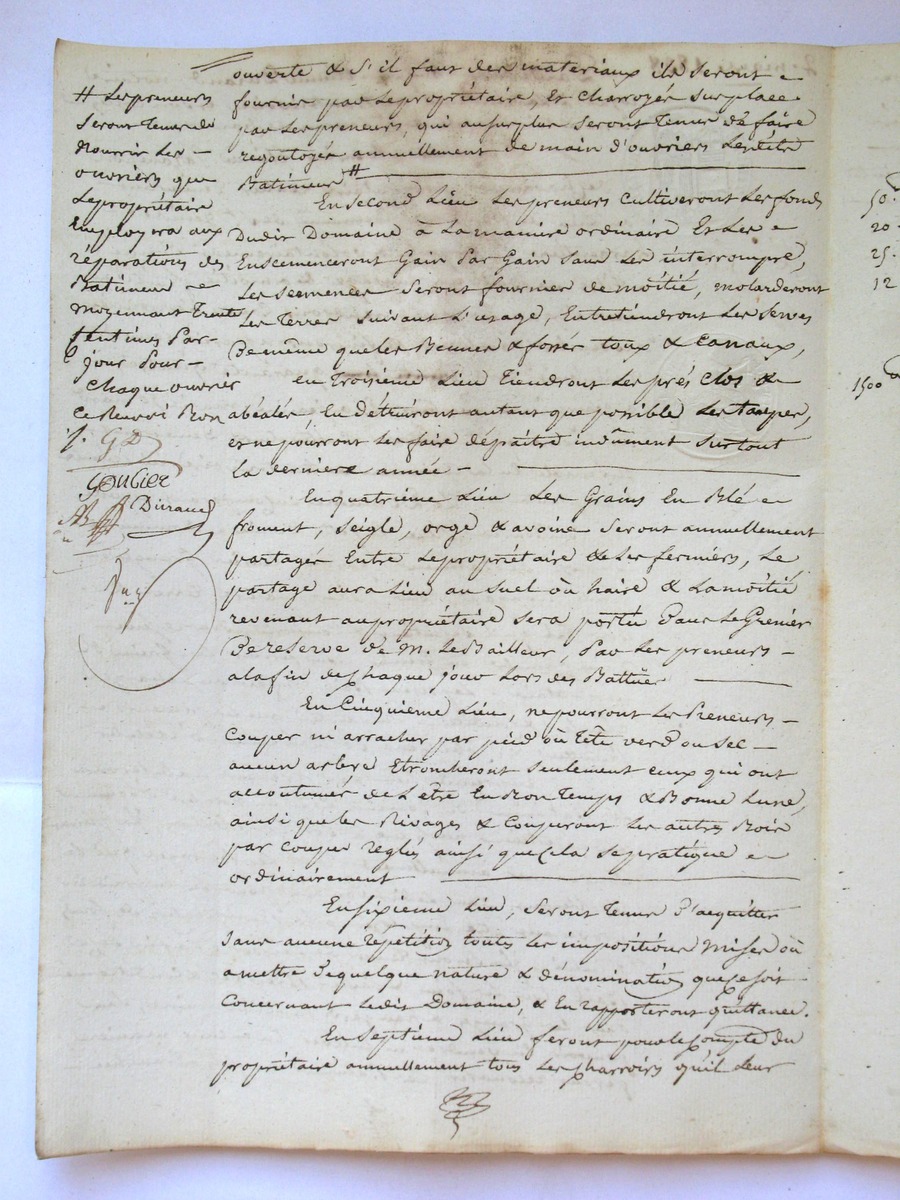 ouverte & S'il faut des materiaux ils seront
fournis par Le propriétaire, Et Charroyés Sur place
par Les preneurs, qui au surplus seront Tenus de faire
regoutoyer annuellement de main d'ouvriers Lesdits
Batimens #
En second Lieu Les preneurs Cultiveront Les fonds
Dudit Domaine à La maniere ordinaire Et Les
Ensemenceront Gain Par Gain sans Les interrompre,
Les semences Seront fournies de moitié, molarderont
Les Terres Suivant L'usage, Entretiendront Les Serves
De même que les Bennes & fossés toux & Canaux,
en Troisieme Lieu Tiendront Les prés Clos &
abéalés En détruiront autant que possible Les taupes,
et ne pourront Les faire dépaître indûment Surtout
la derniere année -
En quatrieme Lieu Les Grains En Blé
froment, Seigle, orge & avoine Seront annuellement
partagés Entre Le propriétaire & Les fermiers, Le
partage aura Lieu au Suel où haire & La moitié
revenant au propriétaire Sera portée Dans Le Grenier
De reserve de M. Le Bailleur, Par Les preneurs -
a la fin de Chaque jour Lors des Battües
En Cinquieme Lieu, ne pourront Les Preneurs -
Couper ni arracher par pied où Tête verd ou Sec -
aucun arbre Etroncheront Seulement ceux qui ont
accoutumés de L'être En Bon Temps & Bonne Lune,
ainsi que les Rivages & Couperont Les autres Bois
par Coupes reglés ainsi que Cela Se pratique
ordinairement
En Sixieme Lieu, Seront Tenus D'acquitter
Sans aucune répétition toutes Les impositions Mises où
a mettre De quelque nature & dénomination que Ce soit
Concernant Ledit Domaine, & En rapporteront quittance.
En Septieme Lieu feront pour le Compte du
propriétaire annuellement tous Les Charrois qu'il Leur
# Les preneurs
Seront Tenus de
Nourrir Les -
ouvriers que
Le propriétaire
Employera aux
réparations des
Batimens
moyennant Trente
Centimes Par -
jour Pour -
Chaque ouvrier
Ce Renvoi Bon
G D
Goubier
Durand
50.
20.
25.
12
1500